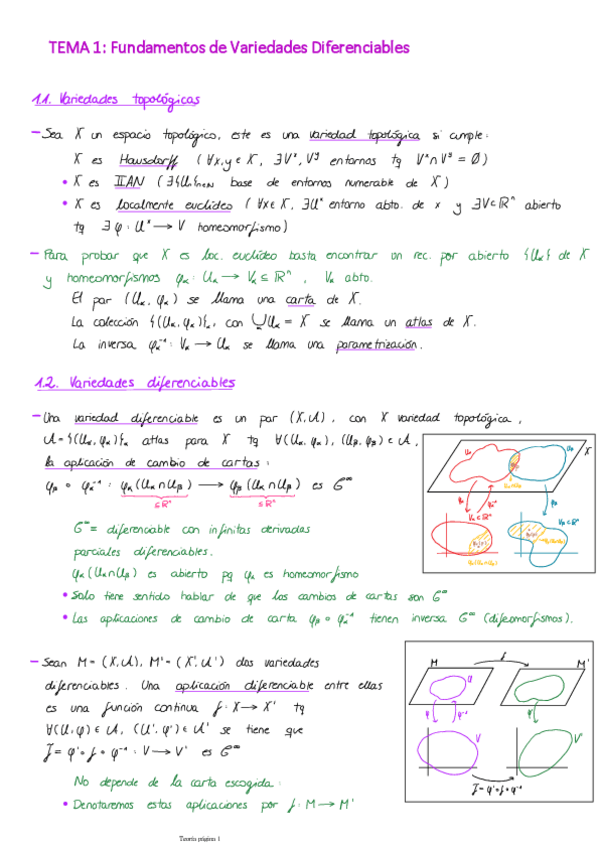 TEMA 1: Fundamentos de Variedades Diferenciables
1.1. Variedades topológicas
— Sea X un espacio topológico, este es una variedad topológica si cumple:
X es Hausdorff (∀x,y ∈ X, ∃Vˣ, Vʸ entornos tq Vˣ∩Vʸ = Ø)
• X es IIAN (∃{Uₙ}ₙ∈ℕ base de entornos numerable de X)
• X es localmente euclídeo (∀x∈X, ∃Uˣ entorno abto. de x y ∃V⊂ℝⁿ abierto
tq ∃ φ: Uˣ → V homeomorfismo)
— Para probar que X es loc. euclídeo basta encontrar un rec. por abierto {Uα} de X
y homeomorfismos φα: Uα → Vα ⊆ ℝⁿ, Vα abto.
El par (Uα, φα) se llama una carta de X.
La colección {(Uα, φα)}α con ⋃Uα = X se llama un atlas de X.
La inversa φα⁻¹: Vα → Uα se llama una parametrización.
1.2. Variedades diferenciables
— Una variedad diferenciable es un par (X,U), con X variedad topológica,
U = {(Uα, φα)}α atlas para X tq ∀(Uα, φα), (Uβ, φβ) ∈ U,
la aplicación de cambio de cartas:
φβ ∘ φα⁻¹: φα(Uα∩Uβ) → φβ(Uα∩Uβ) es C∞
⊆ℝⁿ ⊆ℝⁿ
C∞ = diferenciable con infinitas derivadas
parciales diferenciables.
φα(Uα∩Uβ) es abierto pq φα es homeomorfismo
• Solo tiene sentido hablar de que los cambios de cartas son C∞
• Las aplicaciones de cambio de carta φβ ∘ φα⁻¹ tienen inversa C∞ (difeomorfismos).
Uα Uβ X
φα φα⁻¹ φβ
Vα⊂ℝⁿ Vβ⊂ℝⁿ
— Sean M = (X,U), M' = (X',U') dos variedades
diferenciables. Una aplicación diferenciable entre ellas
es una función continua f: X → X' tq
∀(U,φ) ∈ U, (U',φ') ∈ U' se tiene que
f̃ = φ'∘f∘φ⁻¹: V → V' es C∞
No depende de la carta escogida:
• Denotaremos estas aplicaciones por f: M → M'
M f M'
U
φ φ⁻¹ φ'
V V'
f̃ = φ'∘f∘φ⁻¹
Teoría página 1